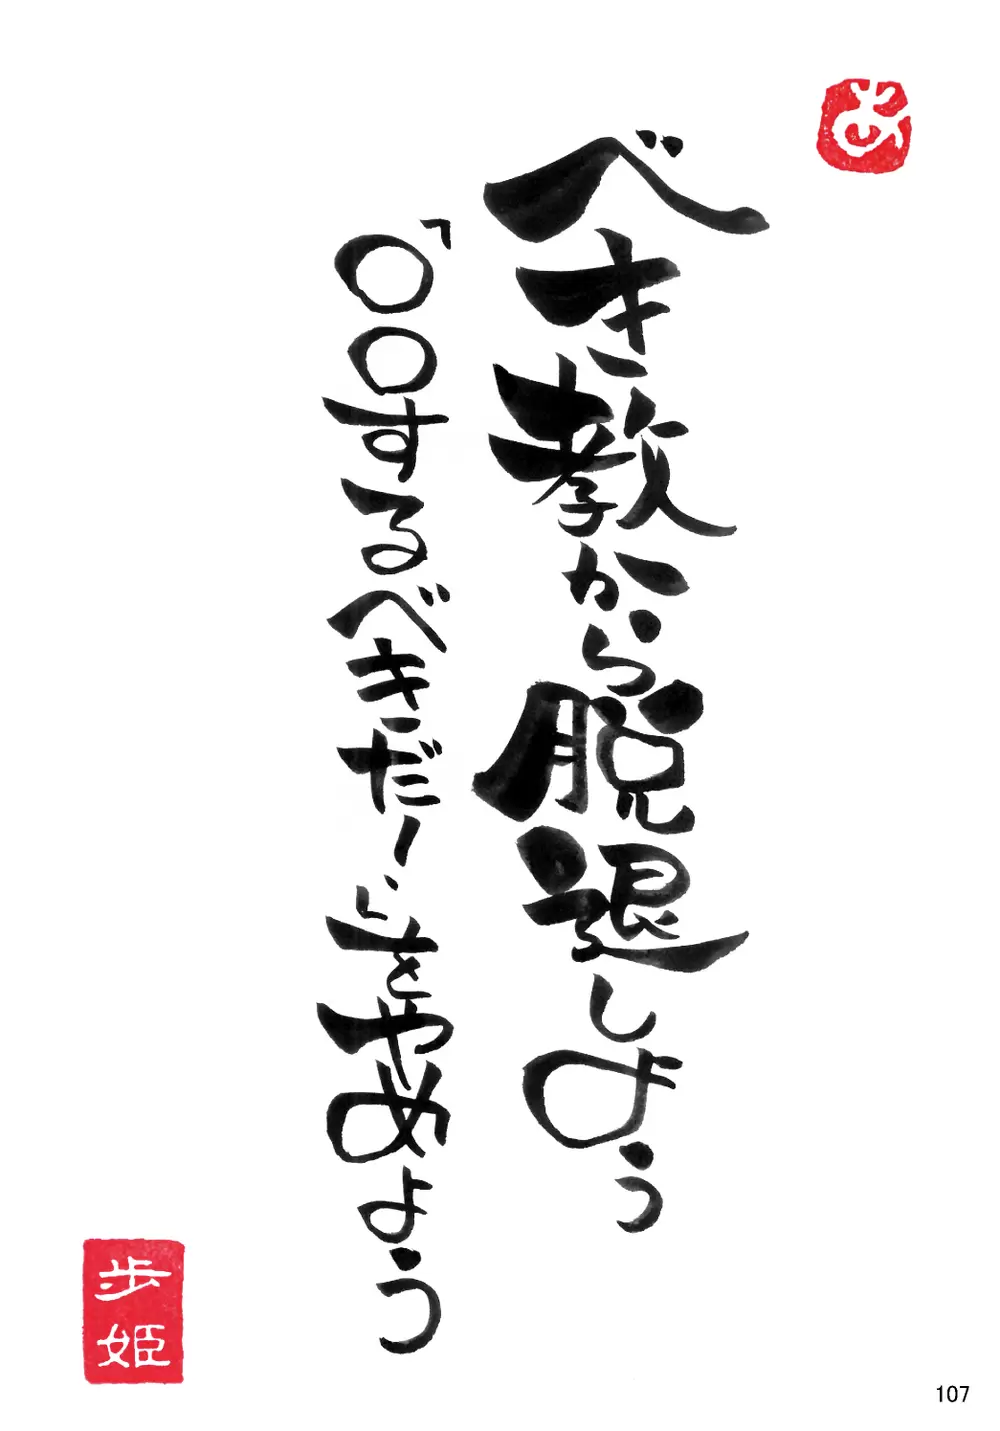 あ
べき教から脱退しよう
「〇〇するべきだー!」をやめよう
歩姫
107